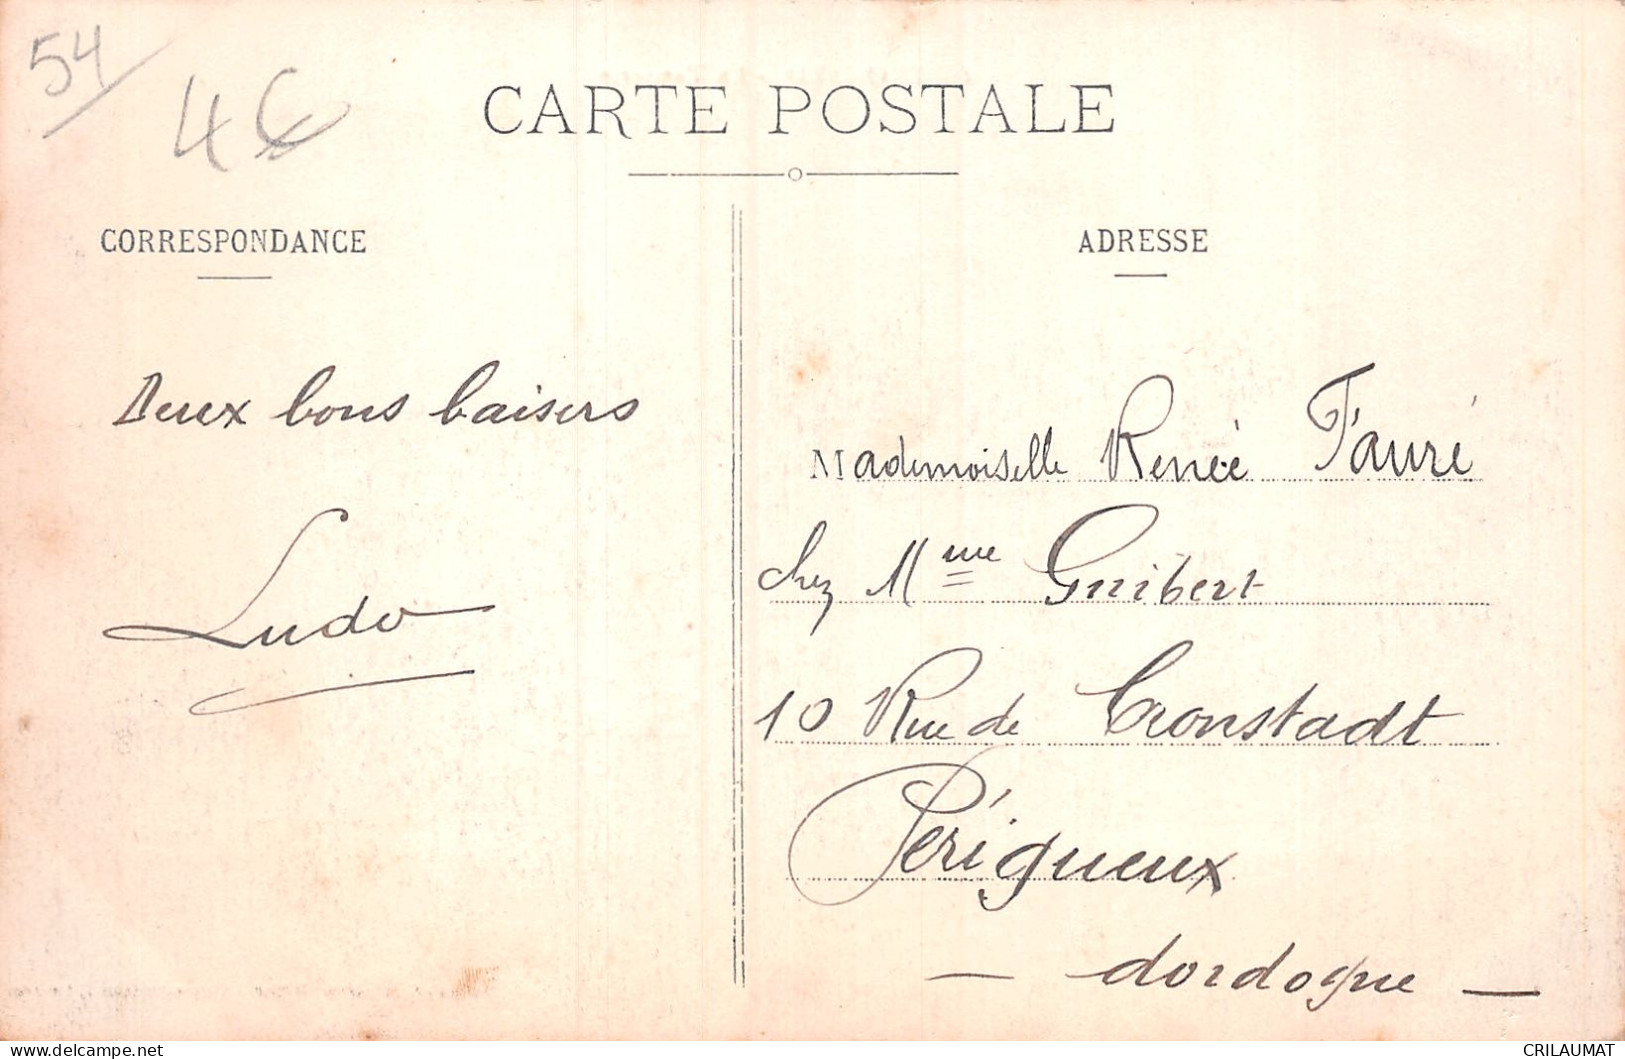 54
4€
CARTE POSTALE
CORRESPONDANCE
Deux bons baisers
Ludo
ADRESSE
Mademoiselle Renée Fauré
chez Mme Guibert
10 Rue de Cronstadt
Périgueux
— dordogne —
CRILAUMAT